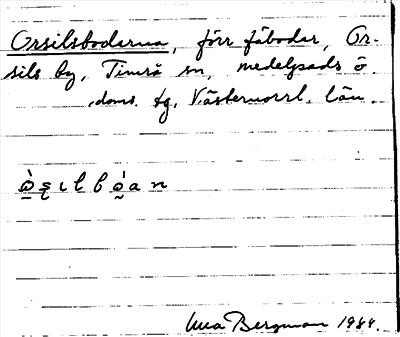 Orsilsboderna, förr fäbodar, Or-
sils by, Timrå sn, Medelpads ö
doms. tg, Västernorrl. län.
Bergman 1984.